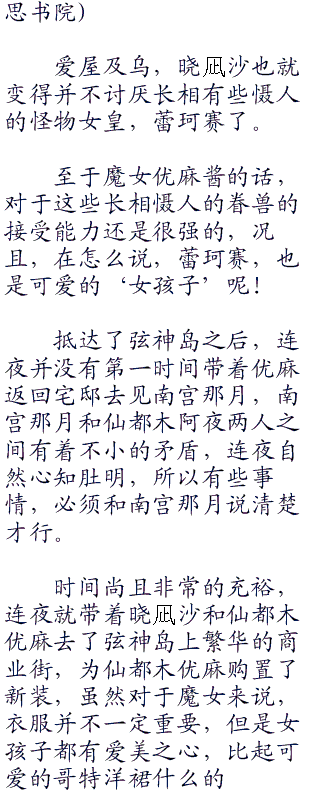 思书院）
爱屋及乌，晓凪沙也就
变得并不讨厌长相有些慑人
的怪物女皇，蕾珂赛了。
至于魔女优麻酱的话，
对于这些长相慑人的眷兽的
接受能力还是很强的，况
且，在怎么说，蕾珂赛，也
是可爱的‘女孩子’呢！
抵达了弦神岛之后，连
夜并没有第一时间带着优麻
返回宅邸去见南宫那月，南
宫那月和仙都木阿夜两人之
间有着不小的矛盾，连夜自
然心知肚明，所以有些事
情，必须和南宫那月说清楚
才行。
时间尚且非常的充裕，
连夜就带着晓凪沙和仙都木
优麻去了弦神岛上繁华的商
业街，为仙都木优麻购置了
新装，虽然对于魔女来说，
衣服并不一定重要，但是女
孩子都有爱美之心，比起可
爱的哥特洋裙什么的